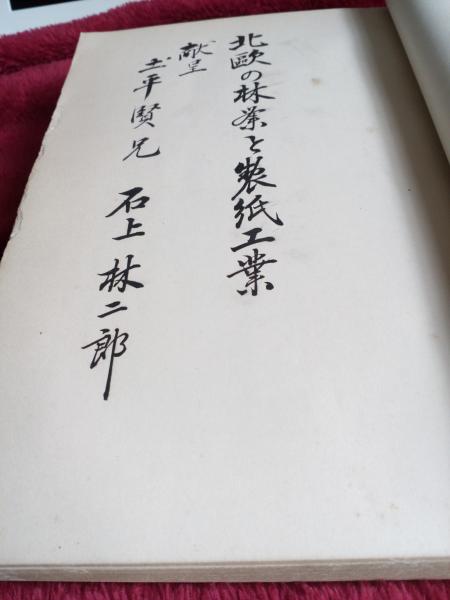 北欧の林業と製紙工業
献呈
土平賢兄
石上林二郎